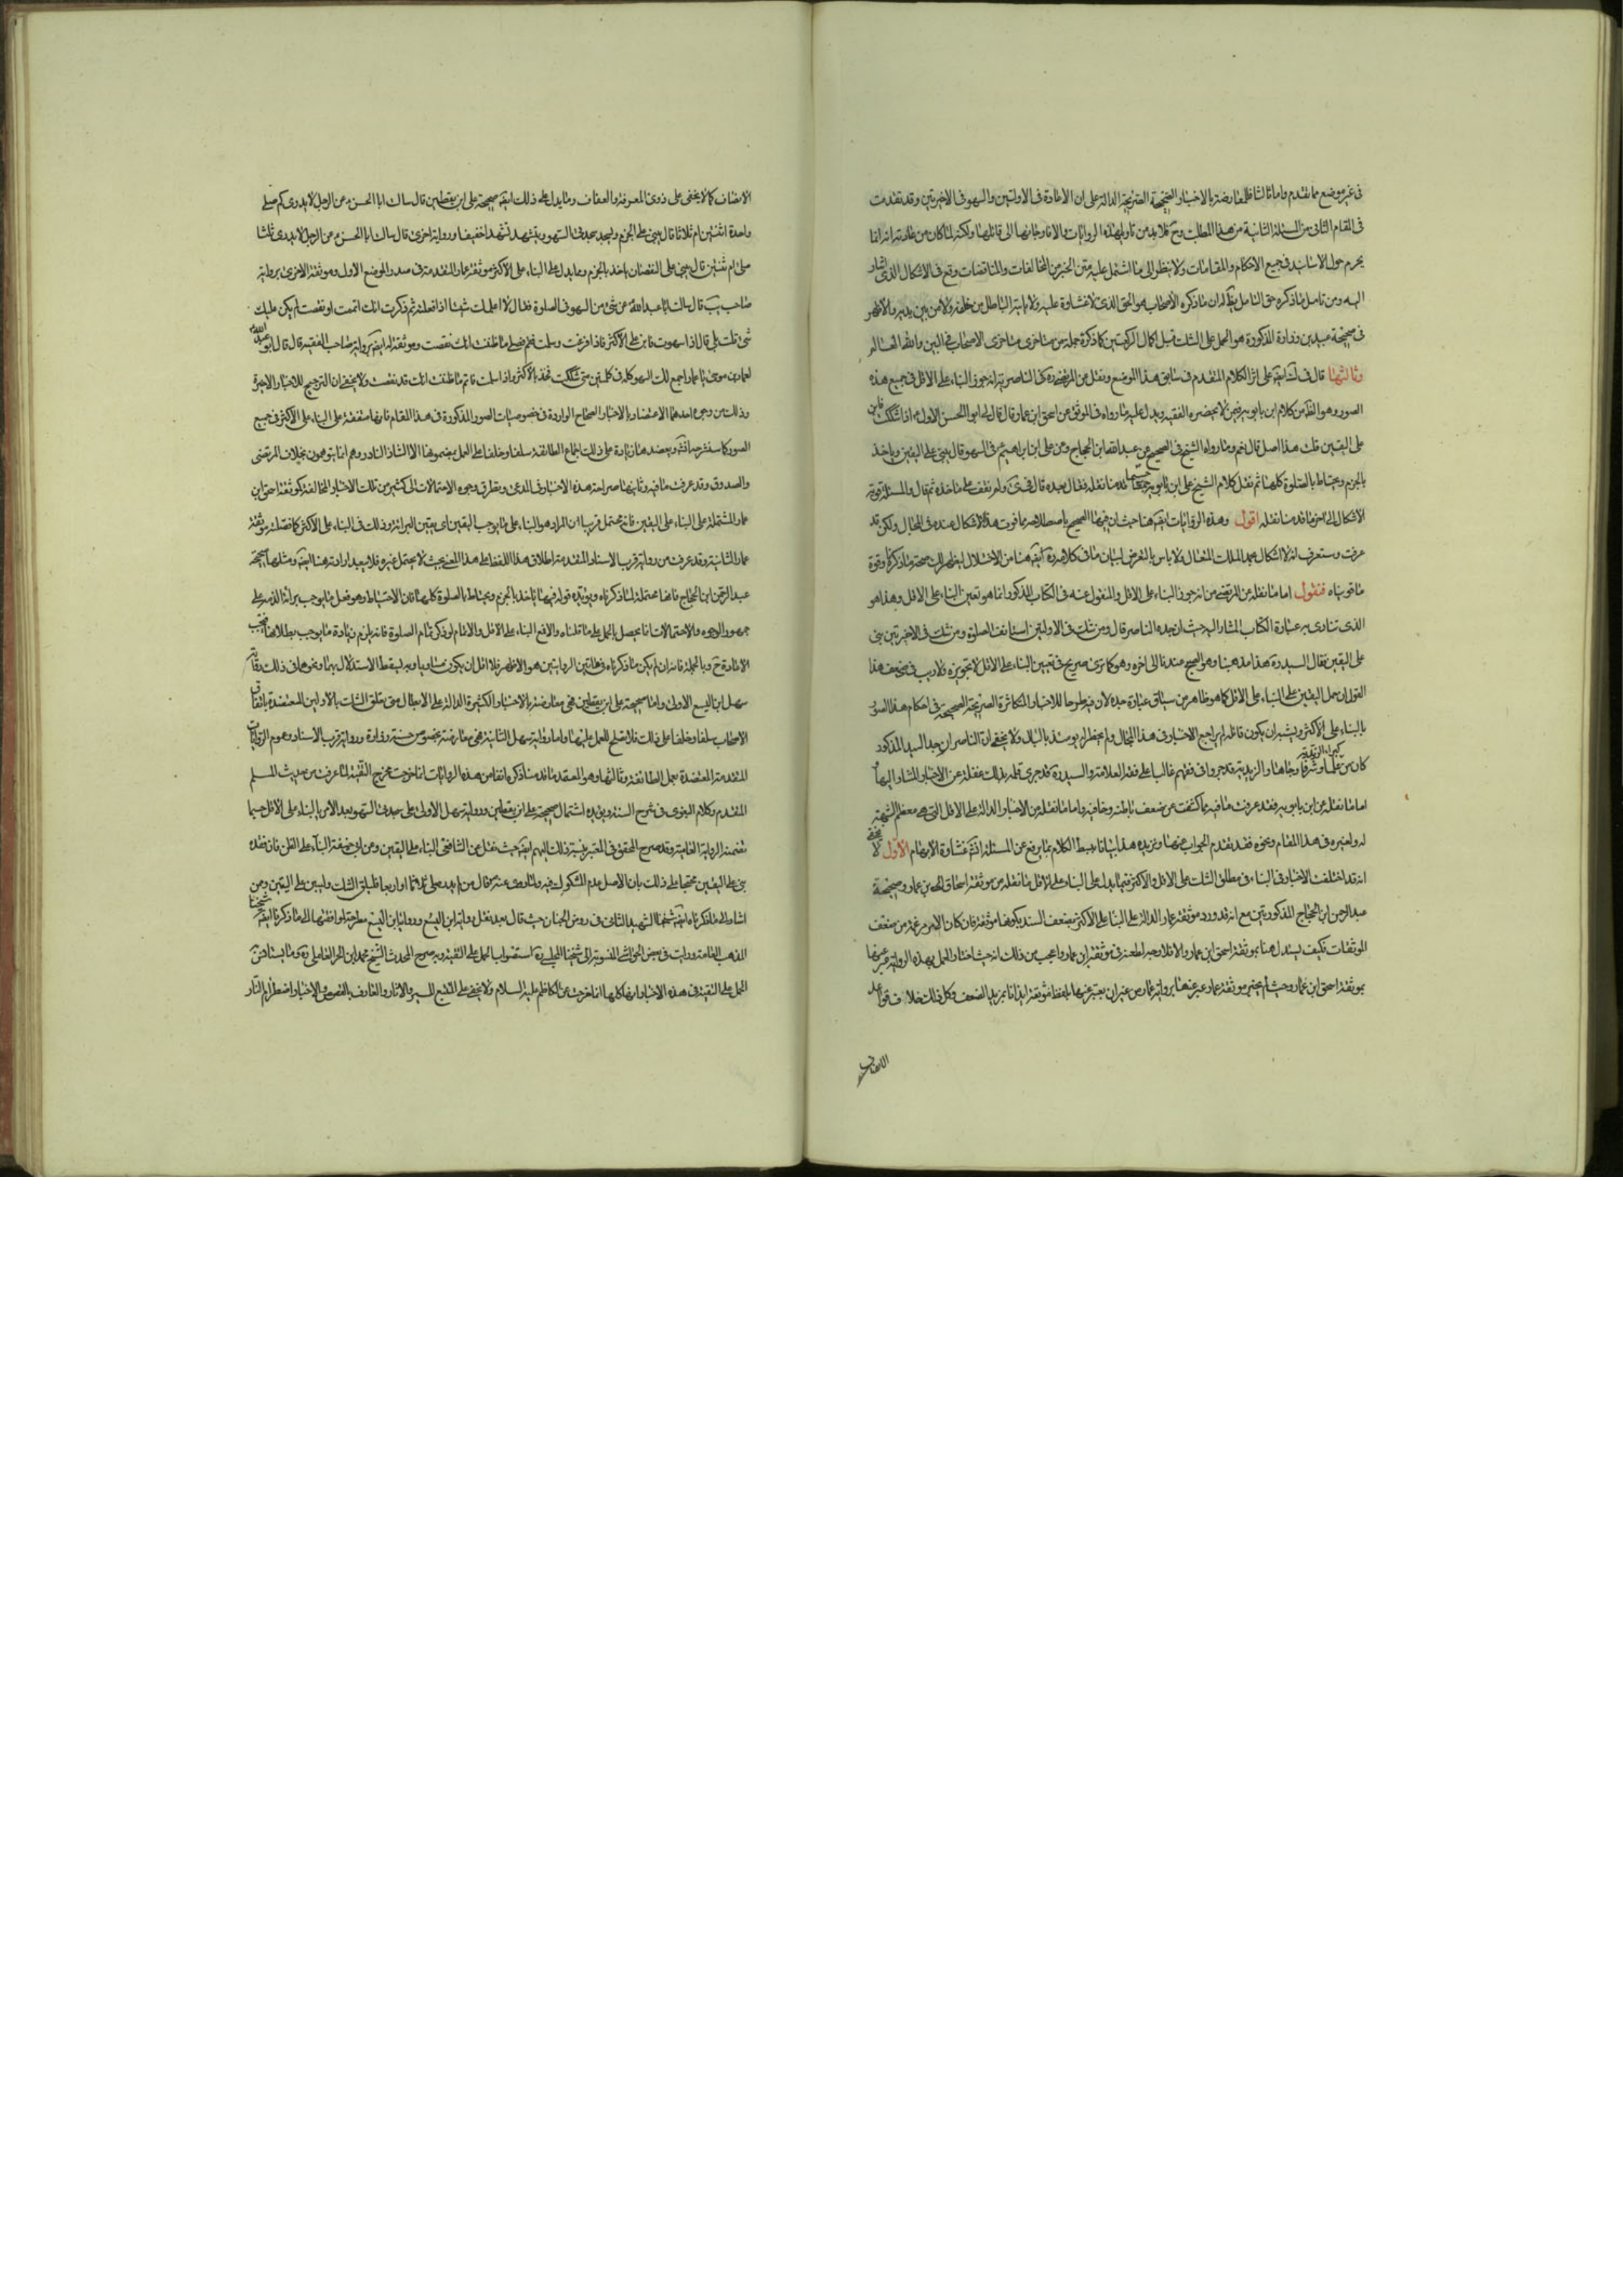 في غير موضع مما تقدم واما ثالثا فلمعارضته بالاخبار الصحيحة الصريحة الدالة على ان الاعادة في الاوليين والسهو في الاخيرتين وقد تقدمت
في المقام الثاني من المسئلة الثانية من هذا المطلب وح فلا بد من تاويل هذه الروايات والا فارجاعها الى قائلها ولكنه لما كان من عادته انه انما
يحوم حول الاسانيد في جميع الاحكام والمقامات ولا ينظر الى ما اشتمل عليه متن الخبر من المخالفات والمناقضات وقع في الاشكال الذي اشار
اليه ومن تامل ما ذكره حق التامل يظهر له ان ما ذكره الاصحاب هو الحق الذي لا غشاوة عليه ولا ياتيه الباطل من خلفه ولا من بين يديه والاظهر
في صحيحة عبيد بن زرارة المذكورة هو الحمل على الشك قبل اكمال الركعتين كما ذكره جملة من متاخري متاخري الاصحاب في البين والله العالم
وثالثها قال في ك ايضا على اثر الكلام المتقدم في سابق هذا الموضع ونقل عن المرتضى ره في الناصرية انه جوز البناء على الاقل في جميع هذه
الصور وهو الظاهر من كلام ابن بابويه فيمن لا يحضره الفقيه ويدل عليه ما رواه في الموثق عن اسحق ابن عمار قال قال لي ابو الحسن الاول ع اذا شككت فابن
على اليقين قلت هذا اصل قال نعم وما رواه الشيخ في الصحيح عن عبد الرحمن ابن الحجاج وعن علي عن ابي ابراهيم ع في السهو قال يبني على اليقين وياخذ
بالجزم ويحتاط بالصلوة كلها ثم نقل كلام الشيخ علي ابن بابويه
الاشكال الى اخر ما قدمنا نقله اقول وهذه الروايات ايضا هنا حيث ان فيها الصحيح باصطلاحه مما قوت هذا الاشكال عنده في المجال ولكن قد
عرفت وستعرف انه لا اشكال بحمد الملك المتعال ولا باس بالتعرض لبيان ما في كلامه ره ايضا هنا من الاختلال ليظهر لك صحة ما ذكرناه وقوة
ما قويناه فنقول اما ما نقله عن المرتضى من انه جوز البناء على الاقل والمنقول عنه في الكتاب المذكور انما هو تعين البناء على الاقل وهذا هو
الذي تنادي به عبارة الكتاب المشار اليه حيث ان جده الناصر قال ومن شك في الاوليين استانف الصلوة ومن شك في الاخيرتين بنى
على اليقين فقال السيد ره هذا مذهبنا وهو الصحيح عندنا الى اخره وهو كما ترى صريح في تعيين البناء على الاقل لا تجويزه ولا ريب في ضعف هذا
القول ان حمل اليقين على البناء على الاقل كما هو ظاهر من سياق عبارة جده لان فيه طرحا للاخبار المتكاثرة الصريحة الصحيحة في احكام هذه الصور
بالبناء على الاكثر ويشبه ان يكون قائله لم يراجع الاخبار في هذا المجال ولم يخطر له يومئذ بالبال ولا يخفى ان الناصر ان جد السيد المذكور
كان من علماء وشرفاء كبراء الزيدية
اما ما نقله عن ابن بابويه فقد عرفت ما فيه مما كشفت عن ضعف باطنه وخافيه واما ما نقله من الاخبار الدالة على الاقل التي هي معظم الشبهة
له ولغيره في هذا المقام ونحوه فقد تقدم الجواب عنها ونزيده هنا بيانا ببسط الكلام بما يرفع عن المسئلة انشاء الله غشاوة الابهام الاول لا يخفى
انه قد اختلفت الاخبار في البناء في مطلق الشك على الاقل والاكثر فمما يدل على البناء على الاقل ما نقله من موثقة اسحاق ابن عمار وصحيحة
عبد الرحمن ابن الحجاج المذكورتين مع انه قد ورد موثقة عمار الدالة على البناء على الاكثر بضعف السند بكونها موثقة فان كان الامر
الموثقات فكيف يستدل هنا بموثقة اسحق ابن عمار والا فلا وجه لطعنه في موثقة ابن عمار واعجب من ذلك انه حيث اختار العمل بهذه الرواية عبر عنها
بموثقة اسحق ابن عمار وحيث لم يختر موثقة عمار عبر عنها برواية عمار من غير ان يعبر عنها بلفظ موثقة ايذانا بمزيد الضعف وكل ذلك خلاف قواعد
الانصاف
الانصاف كما لا يخفى على ذوي المعرفة والعفاف ومما يدل على ذلك ايضا صحيحة علي ابن يقطين قال سالت ابا الحسن ع عن الرجل لا يدري كم صلى
واحدة اثنتين ام ثلاثا قال يبني على الجزم ويسجد سجدتي السهو ويتشهد تشهدا خفيفا ورواية اخرى قال سالت ابا الحسن ع عن الرجل لا يدري ثلثا
صلى ام ثنتين قال يبني على النقصان وياخذ بالجزم ومما يدل على البناء على الاكثر موثقة عمار المتقدمة في صدر الموضع الاول وموثقته الاخرى برواية
صاحب يب قال سالت ابا عبد الله ع عن شئ من السهو في الصلوة فقال الا اعلمك شيئا اذا فعلته ثم ذكرت انك اتممت او نقصت لم يكن عليك
شئ قلت بلى قال اذا سهوت فابن على الاكثر فاذا فرغت وسلمت فقم فصل ما ظننت انك نقصت وموثقة له ايضا برواية صاحب الفقيه قال قال ابو عبد الله
لعمار بن موسى يا عمار اجمع لك السهو كله في كلمتين متى شككت فخذ بالاكثر واذا سلمت فاتم ما ظننت انك قد نقصت ولا يخفى ان الترجيح للاخبار الاخيرة
وذلك من وجوه احدها الاعتضاد بالاخبار الصحاح الواردة في خصوصيات الصور المذكورة في هذا المقام فانها متفقة على البناء على الاكثر في جميع
الصور كما سنشرحه انشاء الله ويعضدها زيادة على ذلك اجماع الطائفة سلفا وخلفا على العمل بمضمونها الا الشاذ النادر وهم انما يتوهمون بخلاف المرتضى
والصدوق وقد عرفت ما فيه وثانيها صراحة هذه الاخبار في المدعى وتطرق وجوه الاحتمالات الى كثير من تلك الاخبار المخالفة كموثقة اسحق ابن
عمار المشتملة على البناء على اليقين فانه يحتمل قريبا ان المراد هو البناء على ما يوجب اليقين اي يقين البراءة وذلك في البناء على الاكثر كما فصلته موثقة
عمار الثانية وقد عرفت من رواية قرب الاسناد المتقدمة اطلاق هذا اللفظ على هذا المعنى بحيث لا يحتمل غيره فلا يبعد ارادته هنا ايضا ومثلها صحيحة
عبد الرحمن ابن الحجاج فانها محتملة لما ذكرناه ويؤيده قوله فيها ياخذ بالجزم ويحتاط بالصلوة كلها فان الاحتياط وهو فعل ما يوجب براءة الذمة على
جمهور الوجوه والاحتمالات انما يحصل بالحمل على ما قلناه والا فمع البناء على الاقل والاتمام لو ذكر تمام الصلوة فانه يلزم زيادة ما يوجب بطلانها فتجب
الاعادة ح وبالجملة فانه ان لم يكن ما ذكرناه في هاتين الروايتين هو الاظهر فلا اقل ان يكون مساويا وبه يسقط الاستدلال بهما ونحوهما في ذلك رواية
سهل ابن اليسع الاولى واما صحيحة علي ابن يقطين فهي معارضة بالاخبار الكثيرة الدالة على الابطال متى تعلق الشك بالاوليين المعتضدة باتفاق
الاصحاب سلفا وخلفا على ذلك فلا تصلح للعمل عليها واما رواية سهل الثانية فهي معارضة بخصوص حسنة زرارة ورواية قرب الاسناد وعموم الروايات
المتقدمة المعتضدة بعمل الطائفة وثالثها وهو المعتمد ما قدمنا ذكره انفا من هذه الروايات انما خرجت مخرج التقية لما عرفت من حديث المسلم
المتقدم وكلام البغوي في شرح السنة ويؤيده اشتمال صحيحة علي ابن يقطين ورواية سهل الاولى على سجدتي السهو بعد الامر بالبناء على الاقل حسبما
تضمنته الرواية العامية وقد صرح المحقق في المعتبر بنسبة ذلك اليهم ايضا حيث نقل عن الشافعي البناء على اليقين وعن ابي حنيفة البناء على الظن فان فقده
بنى على اليقين محتجا على ذلك بان الاصل عدم المشكوك فيه
اشار الى ما ذكرناه ايضا شيخنا الشهيد الثاني في روض الجنان حيث قال بعد نقل رواية ابن اليسع ورواية ابن اليسع مطرحة لموافقتها الى ما ذكرنا ايضا
المذهب العامة ورايت في بعض الحواشي المنسوبة الى شيخنا المجلسي ره استصواب الحمل على التقية وبه صرح المحدث الشيخ محمد ابن الحر العاملي ره ومما يستانس
الحمل على التقية في هذه الاخبار انها كلها انما خرجت عن الكاظم عليه السلام ولا يخفى على المتتبع للسير والاثار والعارف بالقصص والاخبار اضطرام النار